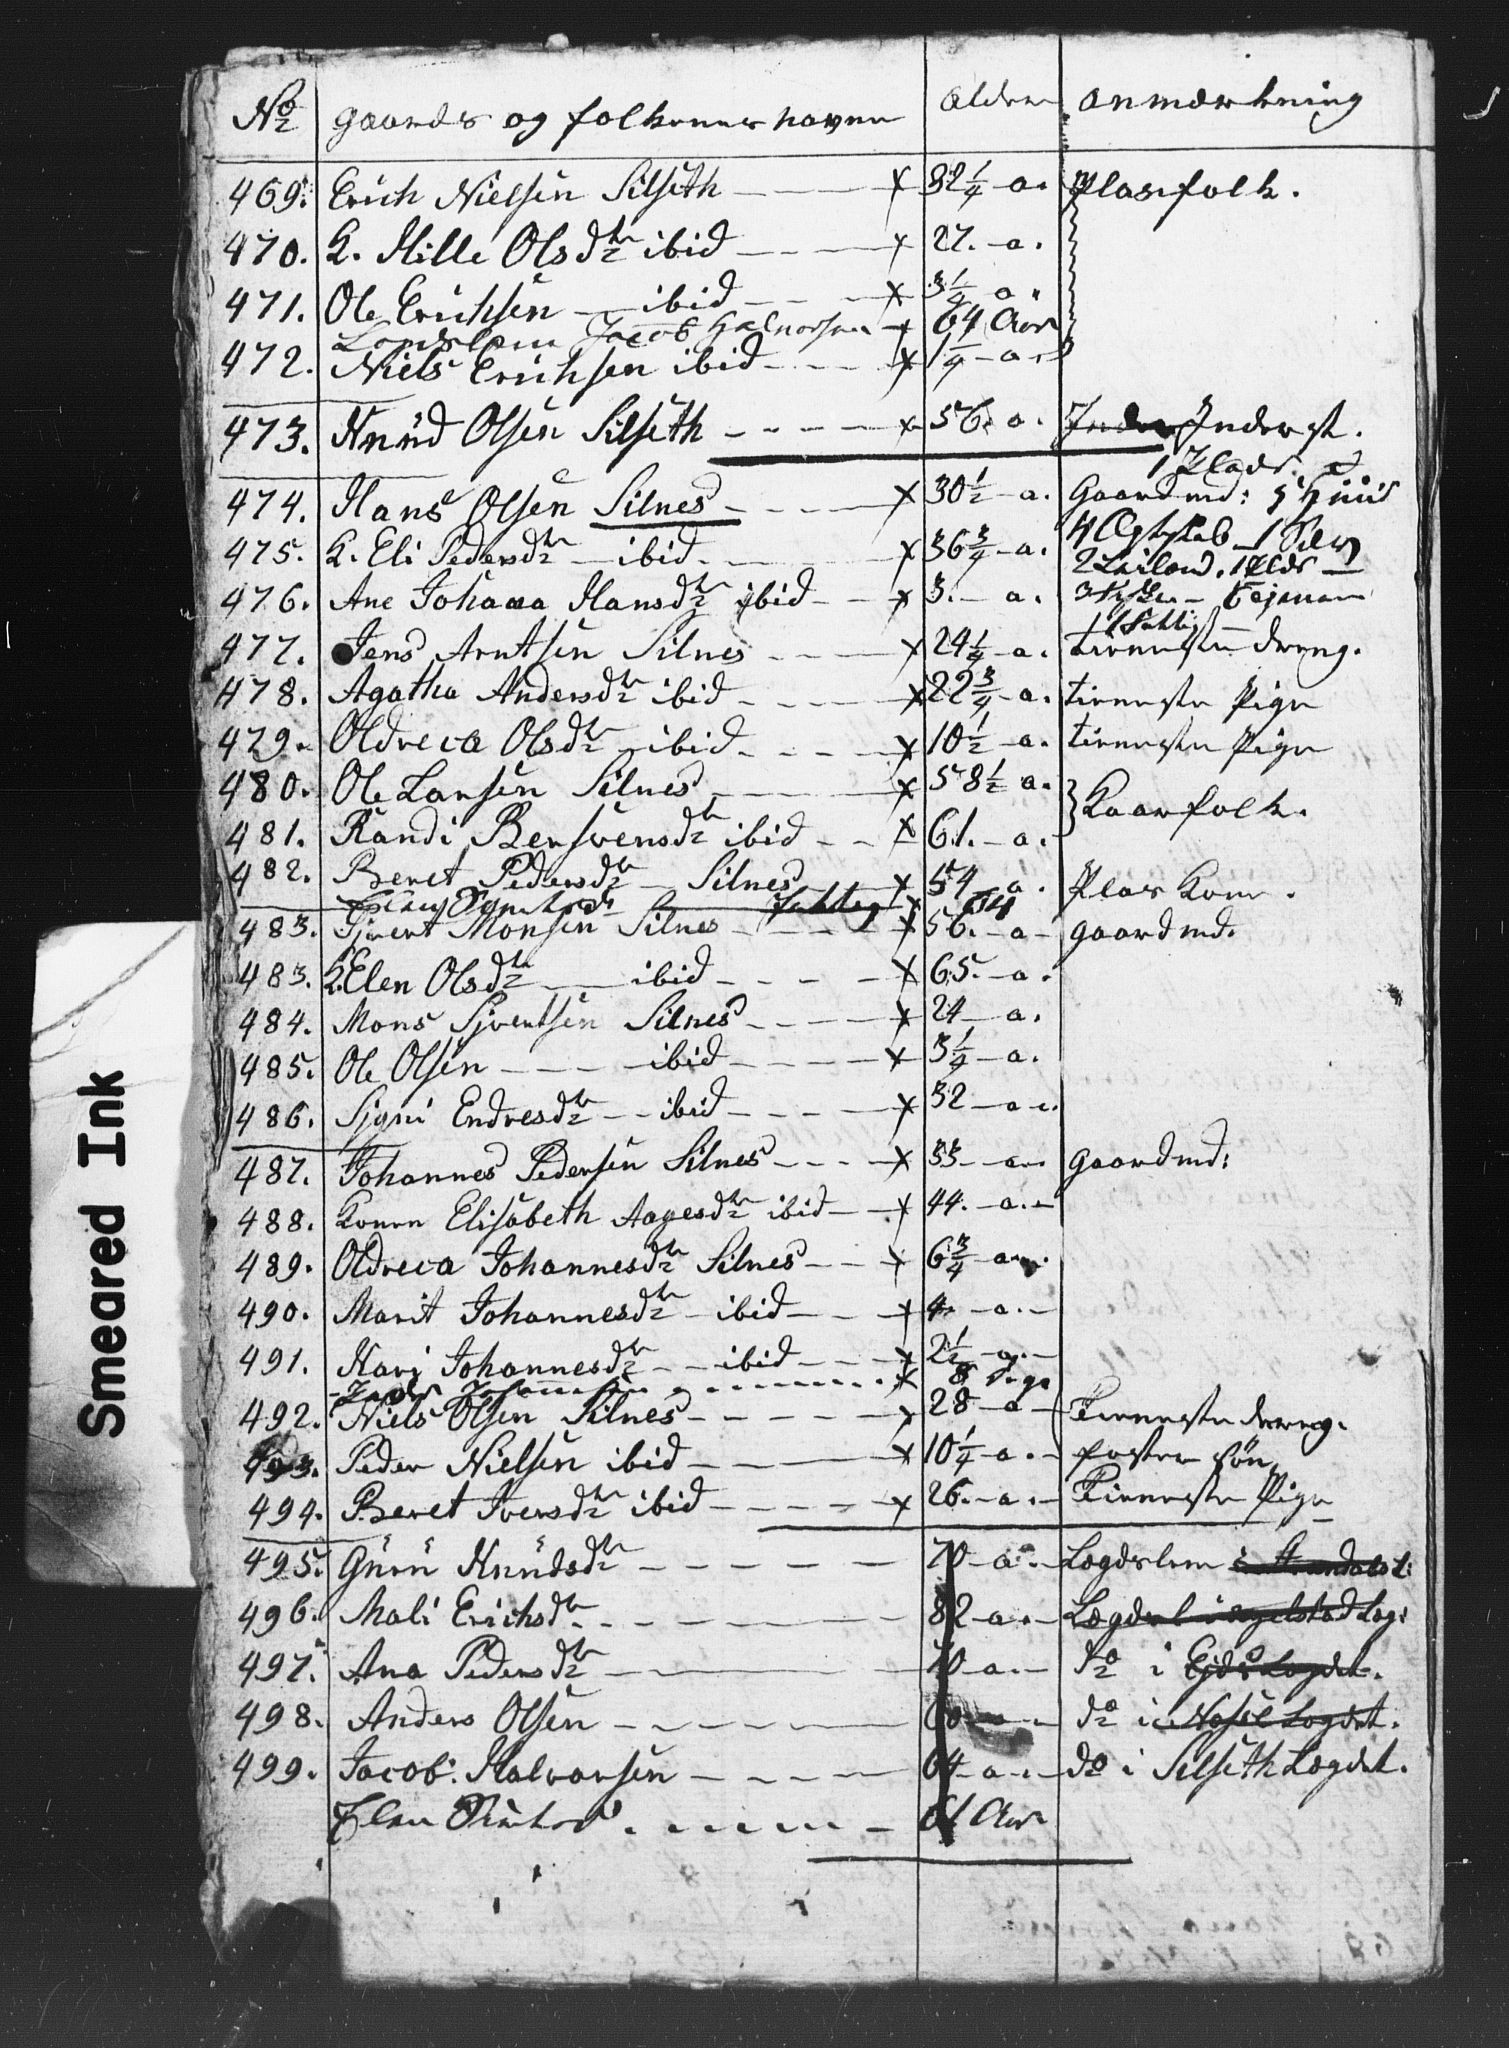 No gaards og folkenes navne alder anmærkning
469. Erich Nielsen Silseth x 32 1/4 a. Plasfolk.
470. K. Mille Olsdtr ibid x 27. a.
471. Ole Erichsen ibid x 3 1/4 a.
Jacob Halvorsen x 64 Aar
472. Niels Erichsen ibid x 1 1/4 a.
473. Knud Olsen Silseth x 56. a. Inderst.
474. Hans Olsen Silnes x 30 1/2 a. Gaardmd:
475. K. Eli Pedersdtr ibid x 36 3/4 a.
476. Ane Johana Hansdtr ibid x 3. a.
477. Jens Arntsen Silnes x 24 1/4 a. tieneste dreng.
478. Agatha Andersdtr ibid x 22 3/4 a. tieneste Pige
479. Oldreca Olsdtr ibid x 10 1/2 a. tieneste Pige
480. Ole Larsen Silnes x 58 1/2 a. Kaarfolk.
481. Randi Bersvensdtr ibid x 61. a.
482. Beret Pedersdtr Silnes x 54 a. Plas Kone.
54
483. Sjvert Monsen Silnes x 56. a gaardmd.
483. K. Elen Olsdtr ibid x 65. a.
484. Mons Sjvertsen Silnes x 24 a.
485. Ole Olsen ibid x 3 1/4 a.
486. Signi Endresdtr ibid x 32 a.
487. Johannes Pedersen Silnes x 33 a. gaardmd:
488. Konen Elisabeth Aagesdtr ibid x 44. a.
489. Oldreca Johannesdtr Silnes x 6 3/4 a.
490. Marit Johannesdtr ibid x 4. a.
491. Kari Johannesdtr ibid x 2 1/2 a.
x 8 Dage
492. Niels Olsen Silnes x 28 a Tieneste dreng.
493. Peder Nielsen ibid x 10 1/4 a. foster søn
494. Beret Iversdtr ibid x 26. a. Tieneste Pige
495. Guru Knudsdtr 70 a. Lægdslem
496. Mali Erichsdtr 82 a. Lægdsl i Lægd
497. Ana Pedersdtr 70 a. do i Lægdet.
498. Anders Olsen 60 a do i Lægdet.
499. Jacob. Halvorsen 64 a. do i Silseth Lægdet.
61 Aar
Smeared Ink